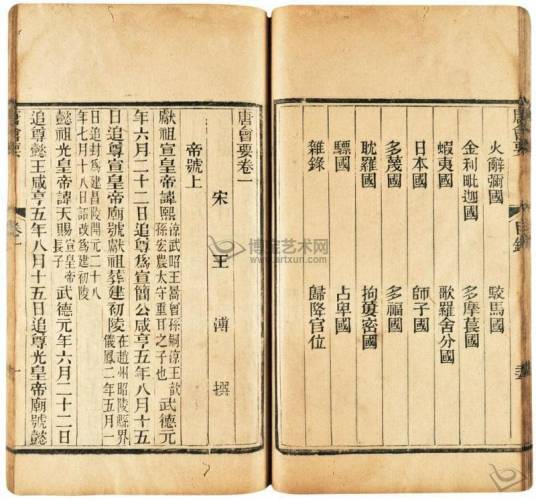 唐會要 目錄
火辭彌國 駮馬國
金利毗迦國 多摩萇國
蝦夷國 歌羅舍分國
日本國 師子國
多蔑國 多福國
耽羅國 拘蔞密國
驃國 占卑國
雜錄 歸降官位
唐會要卷一
宋 王溥 撰
帝號上
獻祖宣皇帝諱熙涼武昭王暠曾孫嗣涼王歆孫宏農太守重耳之子也武德元
年六月二十二日追尊爲宣簡公咸亨五年八月十五
日追尊宣皇帝廟號獻祖葬建初陵在趙州昭陵縣界儀鳳二年五月一
日追封爲建昌陵開元二十八年七月十八日詔改爲建初陵
懿祖光皇帝諱天賜宣皇帝長子武德元年六月二十二日
追尊懿王咸亨五年八月十五日追尊光皇帝廟號懿
唐會要 卷一 一
博宝艺术网
www.artxun.com